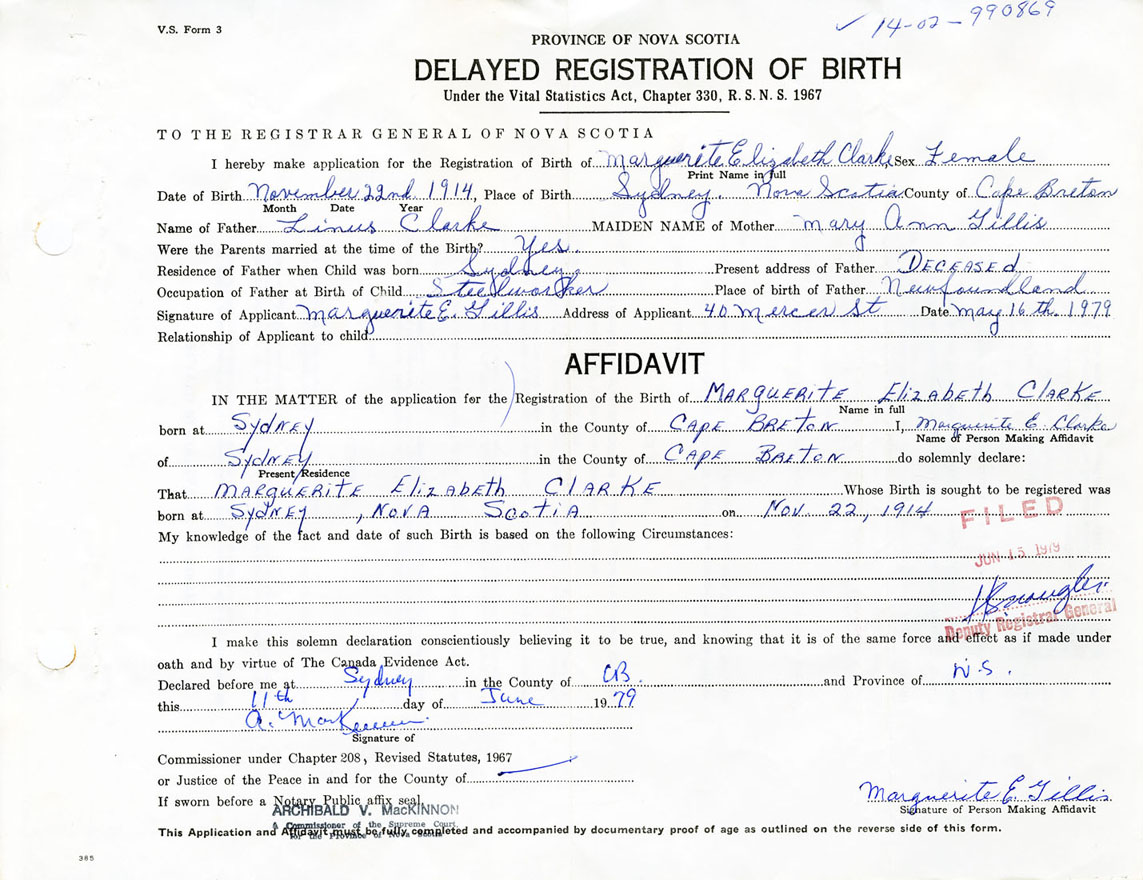 V.S. Form 3
✓ 14-02-990869
PROVINCE OF NOVA SCOTIA
DELAYED REGISTRATION OF BIRTH
Under the Vital Statistics Act, Chapter 330, R. S. N. S. 1967
TO THE REGISTRAR GENERAL OF NOVA SCOTIA
I hereby make application for the Registration of Birth of Marguerite Elizabeth Clarke Sex Female
Print Name in full
Date of Birth November 22nd 1914, Place of Birth Sydney, Nova Scotia County of Cape Breton
Month Date Year
Name of Father Linus Clarke MAIDEN NAME of Mother Mary Ann Gillis
Were the Parents married at the time of the Birth? Yes
Residence of Father when Child was born Sydney, Present address of Father DECEASED
Occupation of Father at Birth of Child Steelworker Place of birth of Father Newfoundland
Signature of Applicant Marguerite E. Gillis Address of Applicant 40 Mercer St Date May 16th. 1979
Relationship of Applicant to child
AFFIDAVIT
IN THE MATTER of the application for the Registration of the Birth of MARGUERITE Elizabeth CLARKE
Name in full
born at SydNEY in the County of CAPE BRETON I, Marguerite E. Clarke
Name of Person Making Affidavit
of SydNEY in the County of CAPE BRETON do solemnly declare:
Present Residence
That MARGUERITE Elizabeth CLARKE Whose Birth is sought to be registered was
born at SydNEY, NOVA ScotiA on Nov. 22, 1914
FILED
My knowledge of the fact and date of such Birth is based on the following Circumstances:
JUN 15 1979
Deputy Registrar General
I make this solemn declaration conscientiously believing it to be true, and knowing that it is of the same force and effect as if made under
oath and by virtue of The Canada Evidence Act.
Declared before me at Sydney in the County of CB. and Province of N.S.
this 11th day of June 1979
A. MacKinnon
Signature of
Commissioner under Chapter 208, Revised Statutes, 1967
or Justice of the Peace in and for the County of
If sworn before a Notary Public affix seal.
Marguerite E Gillis
ARCHIBALD V. MacKINNON
Signature of Person Making Affidavit
A Commissioner of the Supreme Court
for the Province of Nova Scotia
This Application and Affidavit must be fully completed and accompanied by documentary proof of age as outlined on the reverse side of this form.
385